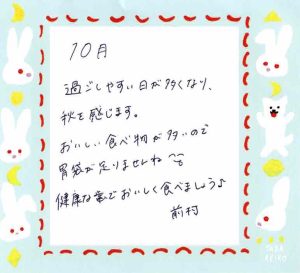 10月
過ごしやすい日が多くなり、
秋を感じます。
おいしい食べ物が多いので
胃袋が足りませんね
健康な歯でおいしく食べましょう♪
前村